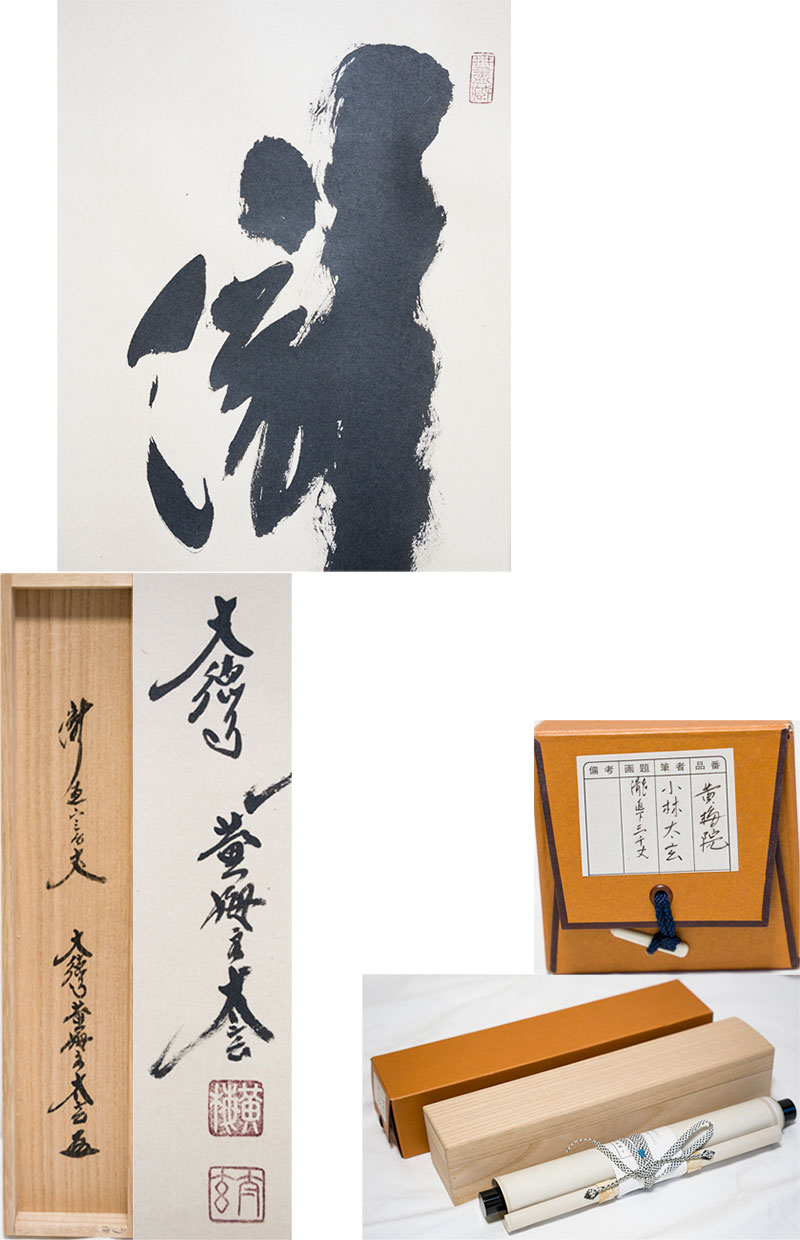 瀧
瀧直下三千丈
大徳黄梅主太玄
大徳
黄梅主太玄
黄梅
太玄
品番 黄梅院
筆者 小林太玄
画題 瀧直下三千丈
備考